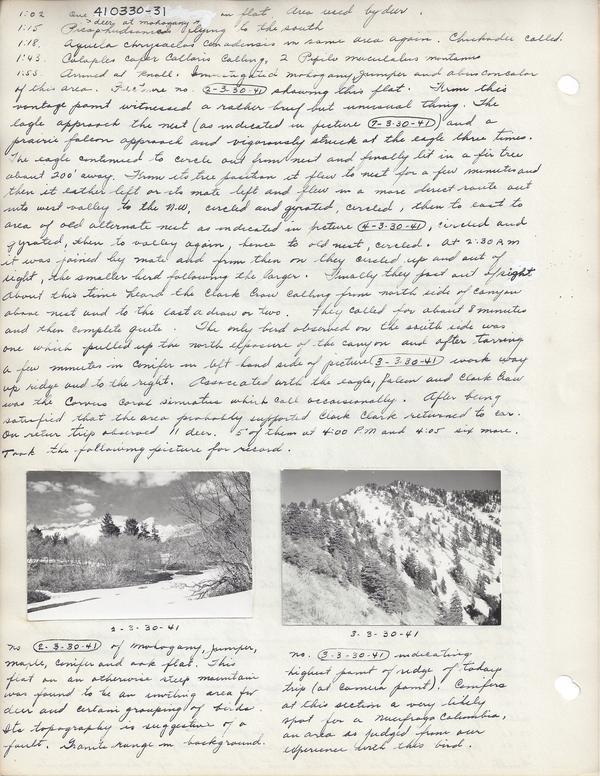 1:02 One 410330-31 on flat. Area used by deer.
1:15 Pica hudsonica flying to the south
" deer at mahogany "
1:18. Aquila chrysaetos canadensis in same area again. Chickadee called.
1:43. Colaptes cafer collaris calling, 2 Pipilo maculatus montanus
1:55. Arrived at knoll. mahogany juniper and abies concolor
of this area. Picture no. 2-3-30-41 showing this flat. From this
vantage point witnessed a rather brief but unusual thing. The
eagle approach the nest (as indicated in picture 7-3-30-41) and a
prairie falcon approach and vigorously struck at the eagle three times.
The eagle continued to circle out from nest and finally lit in a fir tree
about 200' away. From its tree position it flew to nest for a few minutes and
then it either left or its mate left and flew in a more direct route out
into west valley to the N.W, circled and gyrated, circled, then to east to
area of old alternate nest as indicated in picture 4-3-30-41, circled and
gyrated, then to valley again, hence to old nest, circled. At 2:30 P.M
it was joined by mate and from then on they circled up and out of
sight, the smaller bird following the larger. Finally they past out of sight.
About this time heard the Clark Crow calling from north side of canyon
above nest and to the east a draw or two. They called for about 8 minutes
and then complete quite. The only bird observed on the south side was
one which pulled up the north exposure of the canyon and after tarring
a few minutes in conifer in left hand side of picture 3-3-30-41 work way
up ridge and to the right. Associated with the eagle, falcon and Clark Crow
was the Corvus corax sinuatus which call occasionally. After being
satisfied that the area probably supported Clark Clark returned to car.
On return trip observed 11 deer. 5 of them at 4:00 P.M and 4:05 six more.
Took the following picture for record.
2-3-30-41
no 2-3-30-41 of mahogany, juniper,
maple, conifer and oak flat. This
flat on an otherwise steep mountain
was found to be an inviting area for
deer and certain grouping of birds.
Its topography is suggestive of a
fault. Granite range in background.
3-3-30-41
no. 3-3-30-41 indicating
highest point of ridge of todays
trip (at camera point). Conifers
at this section a very likely
spot for a Nucifraga Columbiana,
an area as judged from our
experience with this bird.